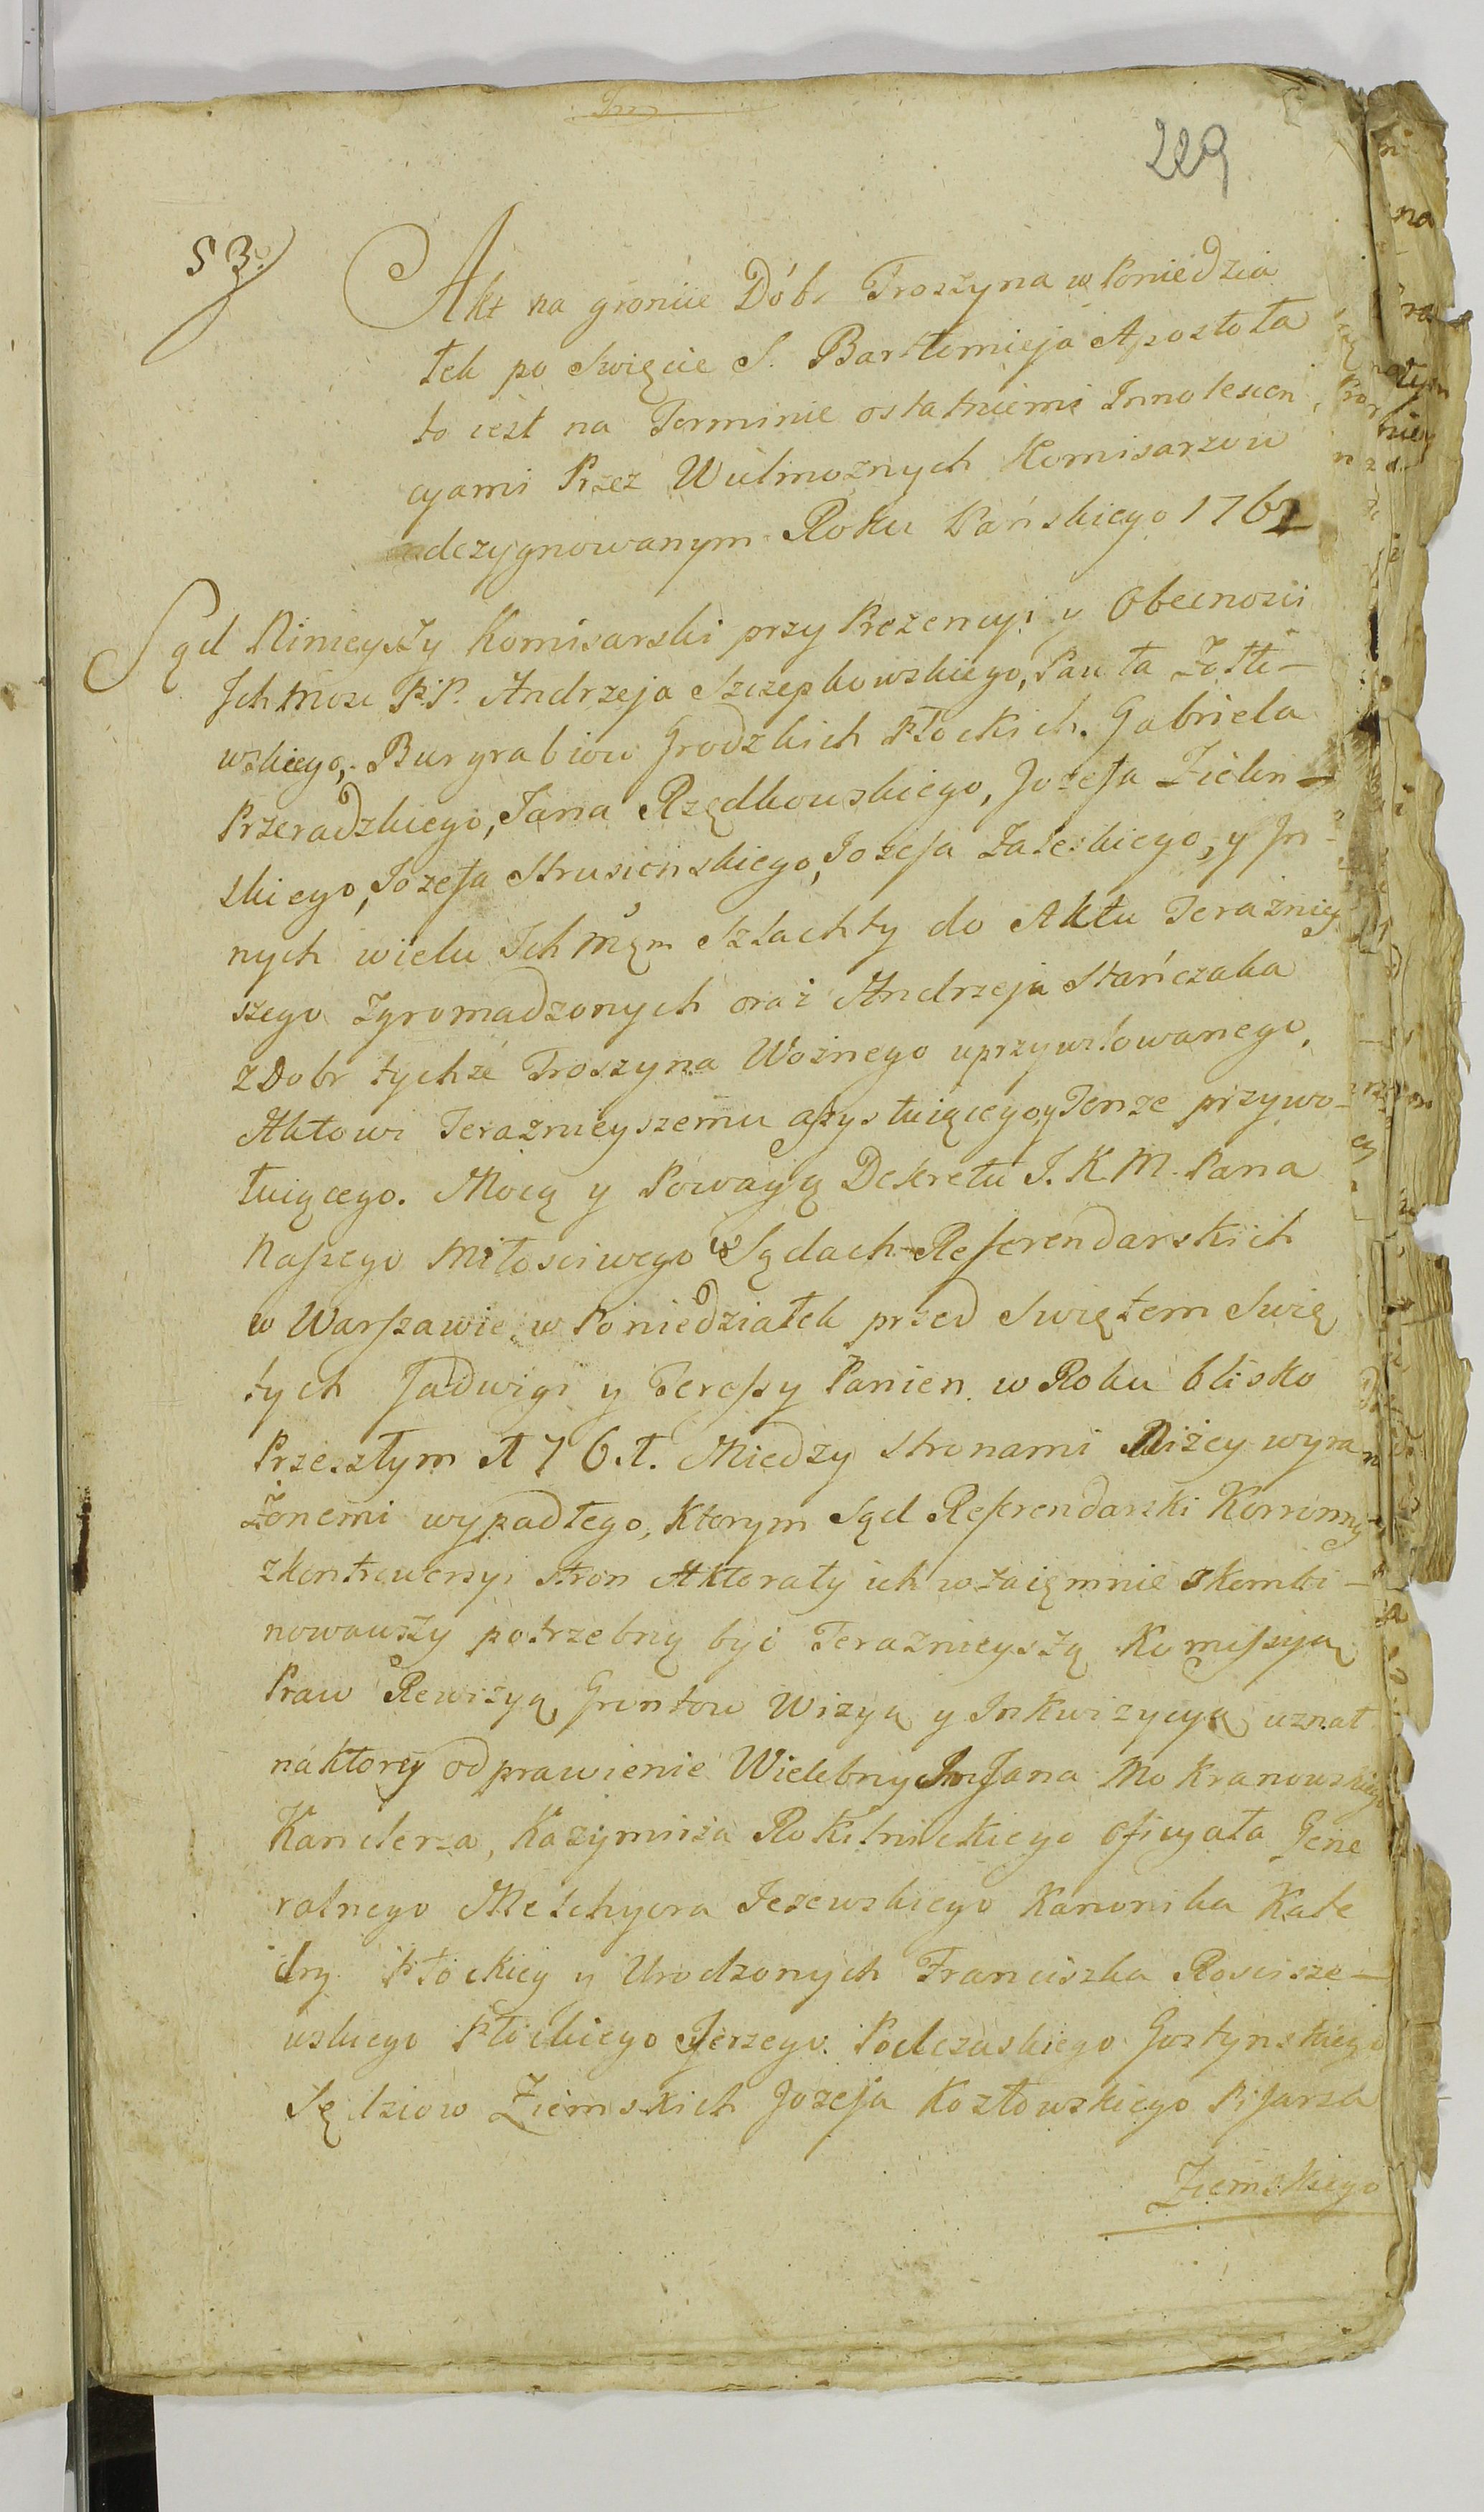 229
53.
Akt na gróncie Dóbr Troszyna w Poniedzia
łek po Swięcie S. Bartłomieja Apostoła
to iest na Terminie ostatniemi Innotescen
cyami Przez Wielmoznych Komisarzow
adezygnowanym Roku Pańskiego 1762
Sąd Ninieyszy Komisarski przy Prezencyi y Obecnosci
Ichmosc P.P. Andrzeja Szczepkowskiego, Pawła Zołto-
wskiego, Burgrabiow Grodzkich Płockich. Gabriela
Przeradzkiego, Jana Rzędkowskiego, Jozefa Zielin-
skiego, Jozefa Strusienskiego, Jozefa Zaleskiego, y In-
nych wielu Ich Mcm Szlachty do Aktu Teraźniey
szego zgromadzonych oraz Andrzeja Stańczaka
z Dobr tychże Troszyna Woźnego uprzywilowanego,
Aktowi Teraznieyszemu assystuiącego, y Tenze przywo-
łuiącego. Mocą y Powagą Dekretu J. K. M. Pana
Naszego Miłosciwego w Sądach Referendarskich
w Warszawie w Poniedziałek przed Swiętem Swię
tych Jadwigi y Teressy Panien w Roku blisko
Przeszłym 1761. Miedzy Stronami Niżey wyra
żonemi wypadłego, Ktorym Sąd Referendarski Koronny
z kontrowersyi Stron Aktoraty ich wzaięmnie skombi-
nowawszy potrzebną być Teraznieyszą Komissyą
Praw Rewizyą, Grontow Wizyą y Inkwizycyą uznał
na ktorey odprawienie Wielebnych Jana Mokranowskiego
Kanclerza, Kazymirza Rokitnickiego Oficyała Gene
ralnego Melchyora Jezewskiego Kanonika Kate
dry Płockiey y Urodzonych Franciszka Roscisze-
wskiego Płockiego Jerzego Podczaskiego Gostynskiego
Sędziow Ziemskich Jozefa Kozłowskiego Pisarza
Ziemskiego